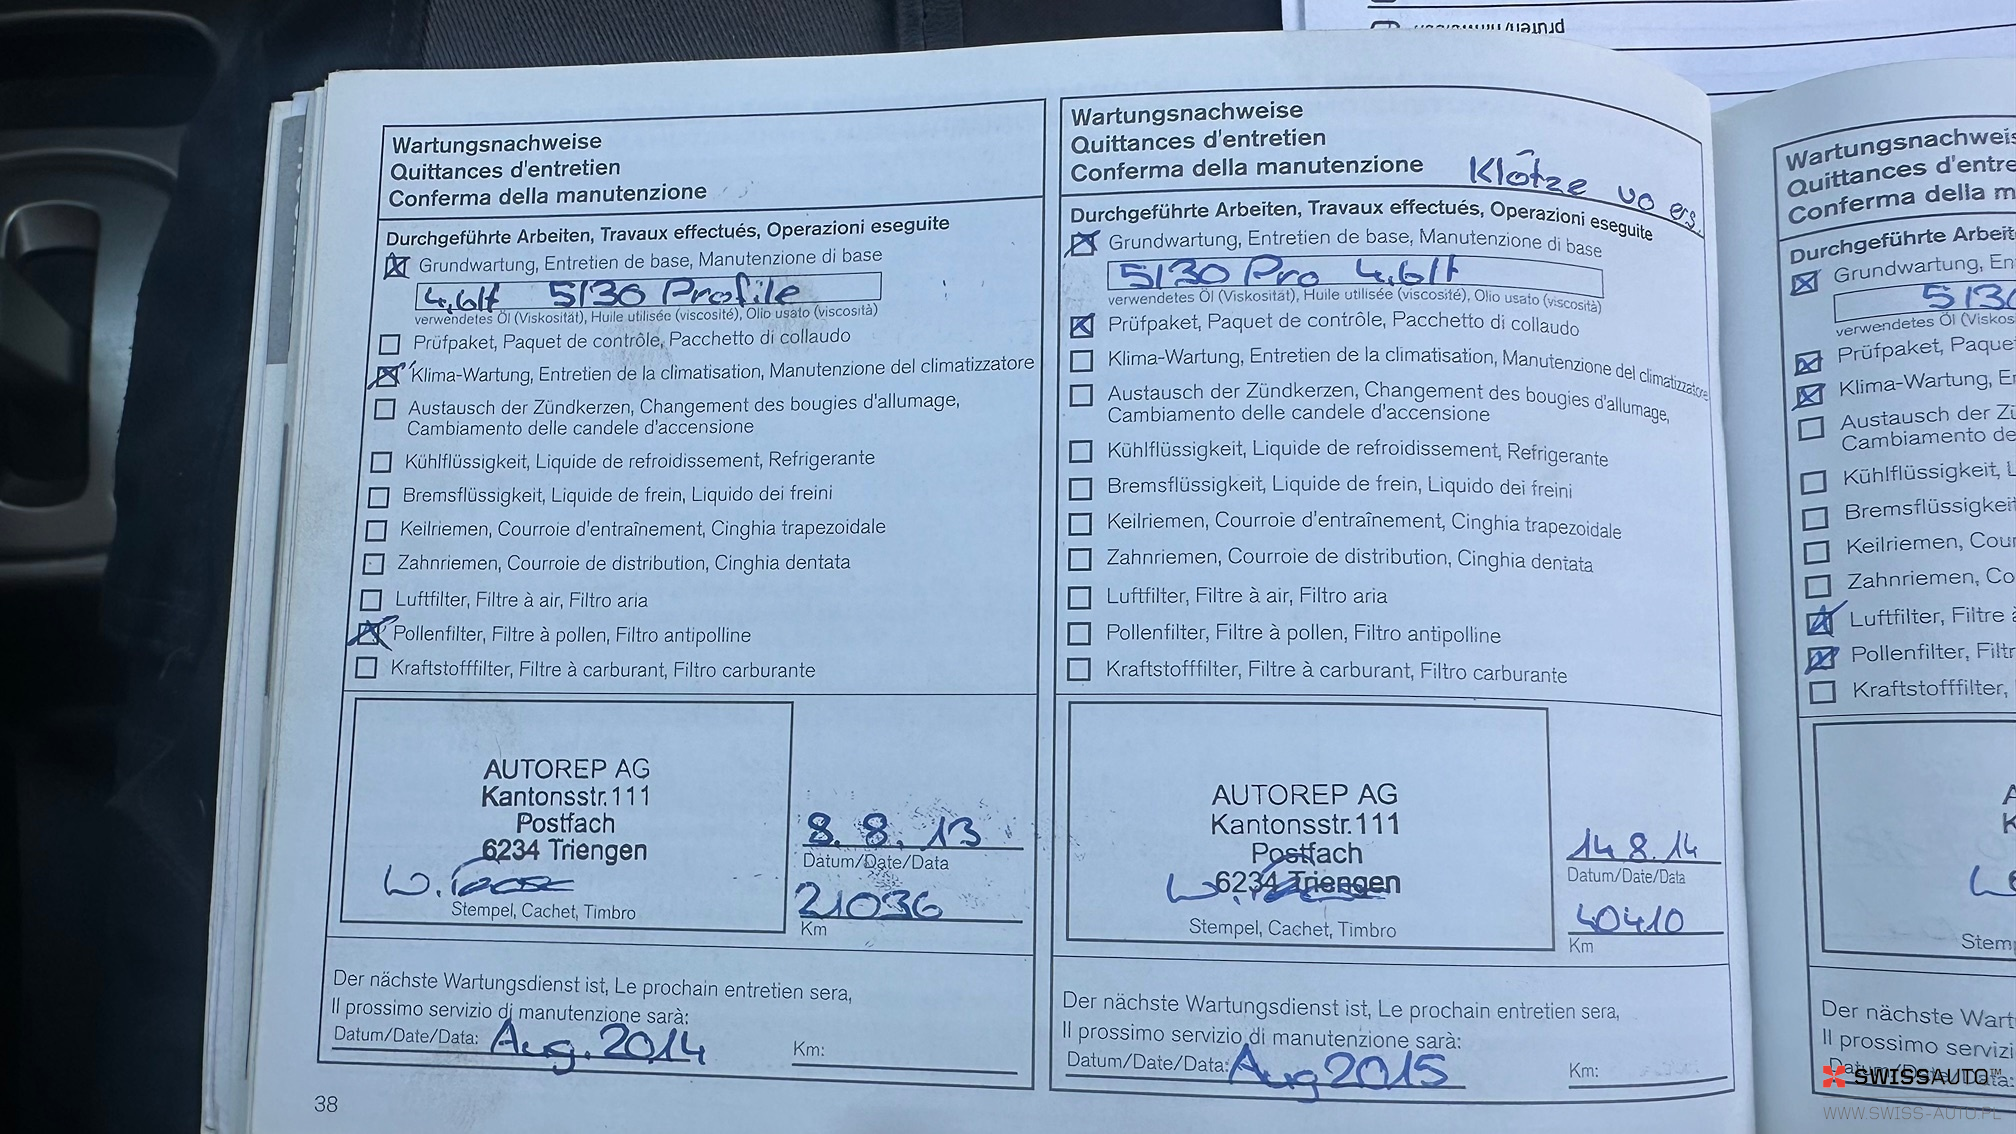 Wartungsnachweise
Quittances d'entretien
Conferma della manutenzione
Durchgeführte Arbeiten, Travaux effectués, Operazioni eseguite
Grundwartung, Entretien de base, Manutenzione di base
4.6lt 5/30 Profile
verwendetes Öl (Viskosität), Huile utilisée (viscosité), Olio usato (viscosità)
Prüfpaket, Paquet de contrôle, Pacchetto di collaudo
Klima-Wartung, Entretien de la climatisation, Manutenzione del climatizzatore
Austausch der Zündkerzen, Changement des bougies d'allumage,
Cambiamento delle candele d'accensione
Kühlflüssigkeit, Liquide de refroidissement, Refrigerante
Bremsflüssigkeit, Liquide de frein, Liquido dei freini
Keilriemen, Courroie d'entraînement, Cinghia trapezoidale
Zahnriemen, Courroie de distribution, Cinghia dentata
Luftfilter, Filtre à air, Filtro aria
Pollenfilter, Filtre à pollen, Filtro antipolline
Kraftstofffilter, Filtre à carburant, Filtro carburante
AUTOREP AG
Kantonsstr.111
Postfach
6234 Triengen
Stempel, Cachet, Timbro
8.8.13
Datum/Date/Data
21036
Km
Der nächste Wartungsdienst ist, Le prochain entretien sera,
Il prossimo servizio di manutenzione sarà:
Datum/Date/Data: Aug. 2014 Km:
38
Wartungsnachweise
Quittances d'entretien
Conferma della manutenzione Klötze vo ers.
Durchgeführte Arbeiten, Travaux effectués, Operazioni eseguite
Grundwartung, Entretien de base, Manutenzione di base
5/30 Pro 4.6lt
verwendetes Öl (Viskosität), Huile utilisée (viscosité), Olio usato (viscosità)
Prüfpaket, Paquet de contrôle, Pacchetto di collaudo
Klima-Wartung, Entretien de la climatisation, Manutenzione del climatizzatore
Austausch der Zündkerzen, Changement des bougies d'allumage,
Cambiamento delle candele d'accensione
Kühlflüssigkeit, Liquide de refroidissement, Refrigerante
Bremsflüssigkeit, Liquide de frein, Liquido dei freini
Keilriemen, Courroie d'entraînement, Cinghia trapezoidale
Zahnriemen, Courroie de distribution, Cinghia dentata
Luftfilter, Filtre à air, Filtro aria
Pollenfilter, Filtre à pollen, Filtro antipolline
Kraftstofffilter, Filtre à carburant, Filtro carburante
AUTOREP AG
Kantonsstr.111
Postfach
6234 Triengen
Stempel, Cachet, Timbro
14.8.14
Datum/Date/Data
40410
Km
Der nächste Wartungsdienst ist, Le prochain entretien sera,
Il prossimo servizio di manutenzione sarà:
Datum/Date/Data: Aug 2015 Km:
Wartungsnachweis
Quittances d'entre
Conferma della m
Durchgeführte Arbeit
Grundwartung, En
5/30
verwendetes Öl (Viskos
Prüfpaket, Paque
Klima-Wartung, E
Austausch der Zü
Cambiamento de
Kühlflüssigkeit, L
Bremsflüssigkeit
Keilriemen, Cour
Zahnriemen, Co
Luftfilter, Filtre à
Pollenfilter, Filtr
Kraftstofffilter,
Stem
Der nächste Wart
Il prossimo servizi
Datum/Date/Data:
SWISSAUTO™
WWW.SWISS-AUTO.PL